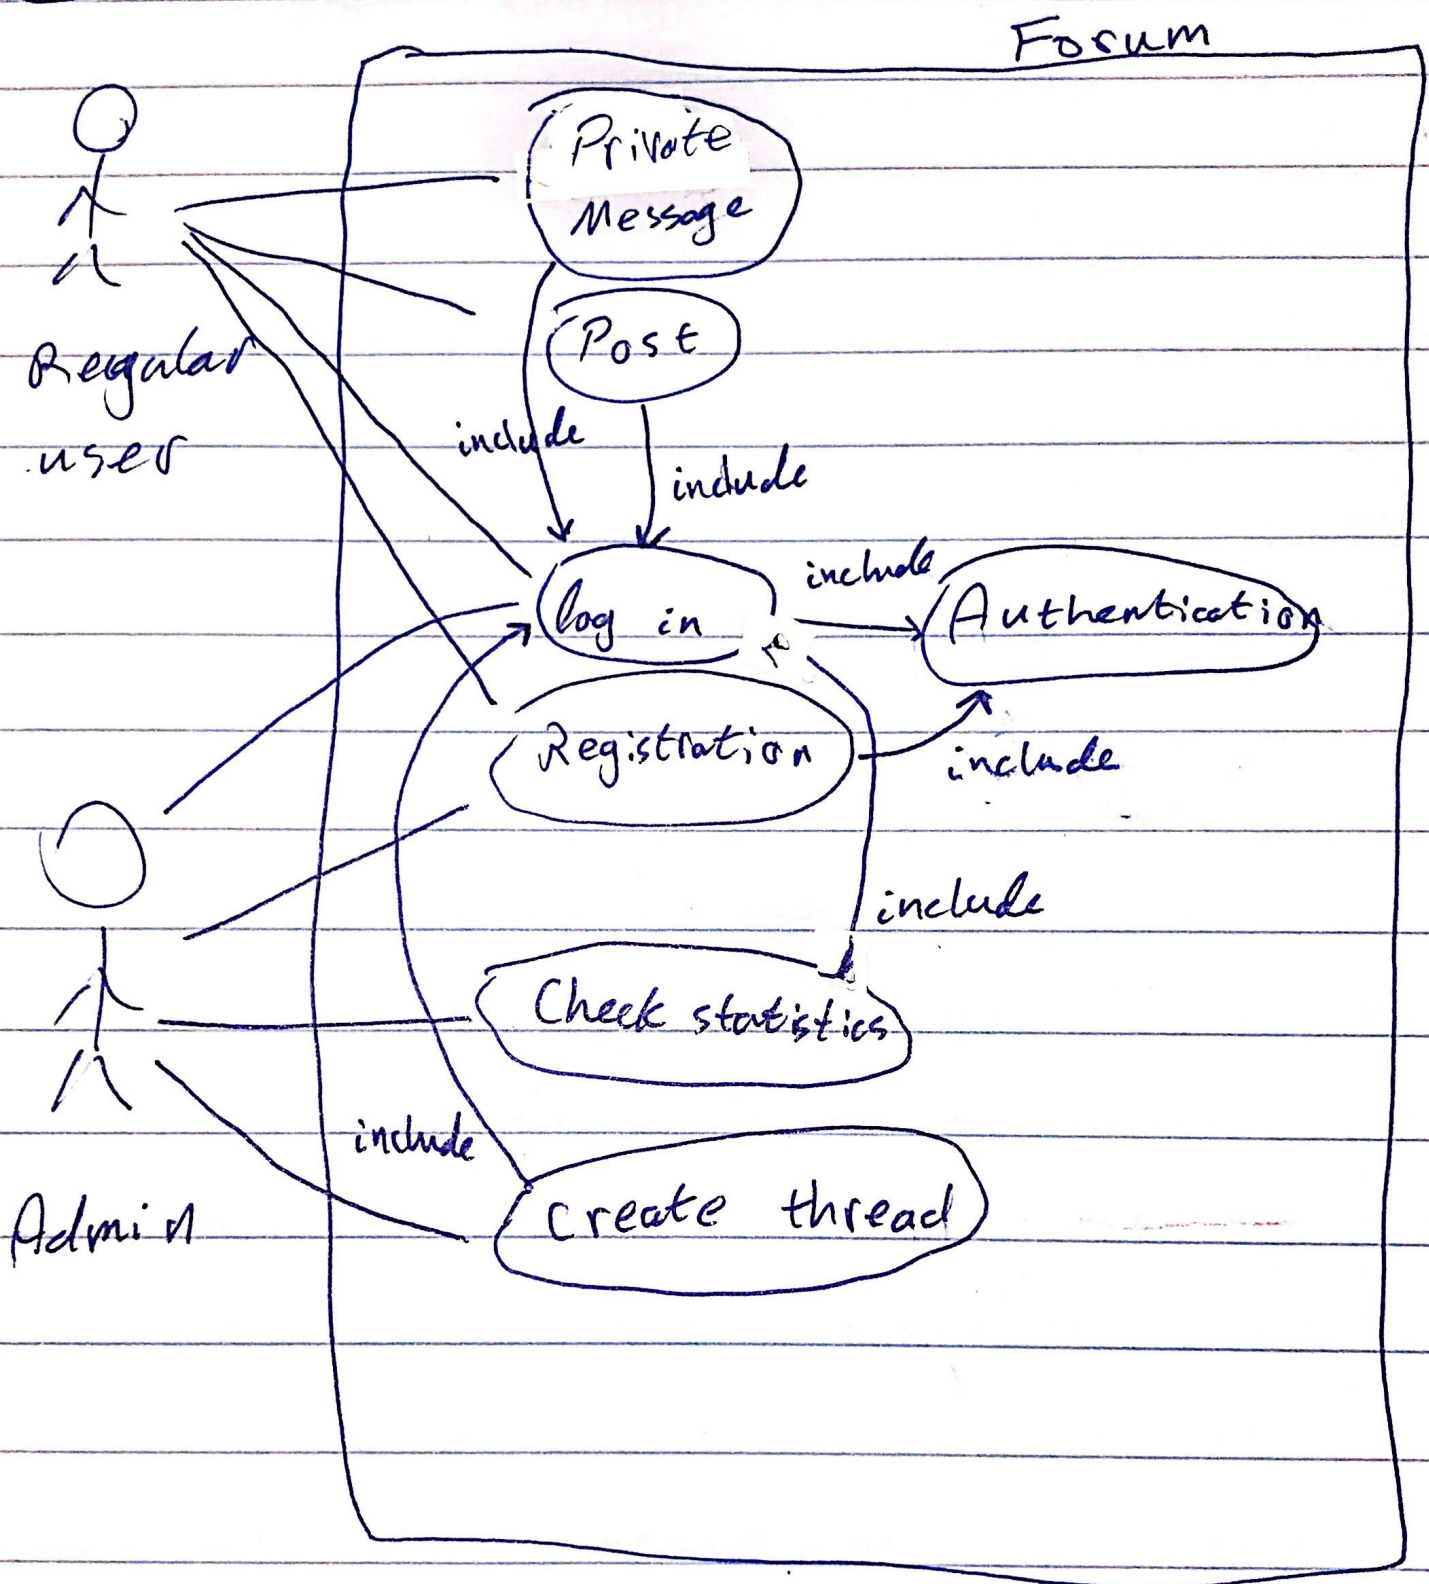 Forum
Private
Message
Post
Regular
user
include
include
include
log in
Authentication
Registration
include
include
Check statistics
include
Create thread
Admin